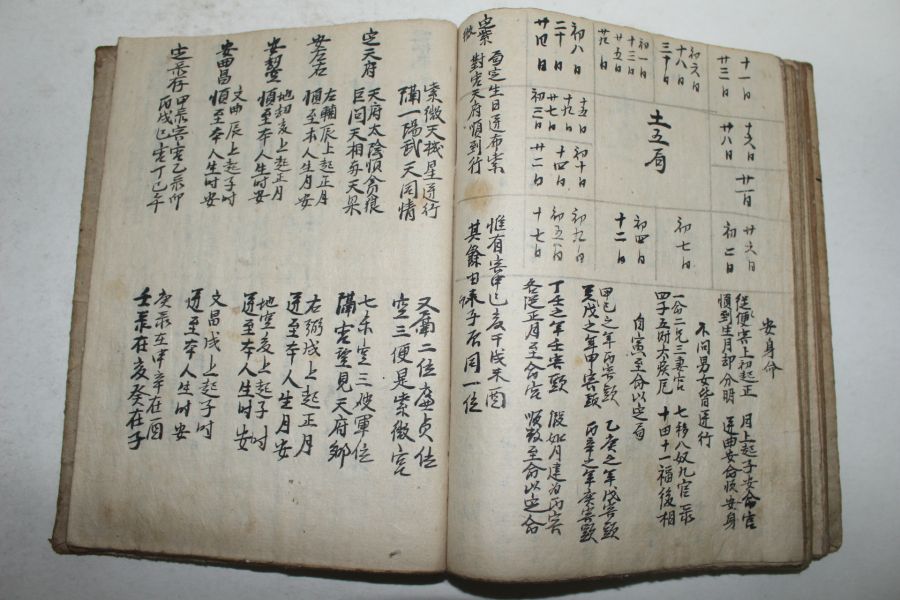 十一日
廿三日
初六日
十八日
三十日
初一日
十三日
廿五日
初八日
二十日
廿四日
十六日
廿八日
廿一日
土五局
十五日
十九日
廿七日
初三日
初十日
十四日
廿二日
廿六日
初二日
初七日
初四日
十二日
初九日
初五日
十七日
安身命
從便寅上初起正 月上起子安命宮
順到生月却分明 逆申安命順安身
不問男女皆逆行
一命二兄三妻宮 七移八奴九官录
四子五財六疾厄 十田十一福後相
自寅至命以定局
甲己之年丙寅頭 乙庚之年戊寅頭
戊之年甲寅頭 丙辛之年庚寅頭
丁壬之年壬寅頭 假如月建为丙寅
各從正月至命宮 順数至命以定命
定紫微
局定生日逆布紫 惟有寅申巳亥
對宮天府順到行 其餘由来子辰同一位
紫微天機星逆行 又兼二位廉貞位
隔一陽武天同情 空三便是紫微宮
定天府
天府太陰順貪狼 七杀空三破軍位
巨門天相与天梁 隔宮望見天府鄉
安左右
左輔辰上起正月 右弼戌上起正月
順至本人生月安 逆至本人生月安
安
地劫亥上起子时 地空亥上起子时
順至本人生时安 逆至本人生时安
安曲昌
文曲辰上起子时 文昌戌上起子时
順至本人生时安 逆至本人生时安
定录存
甲录寅宮乙录卯 庚录在申辛在酉
丙戊巳宮丁己午 壬录在亥癸在子